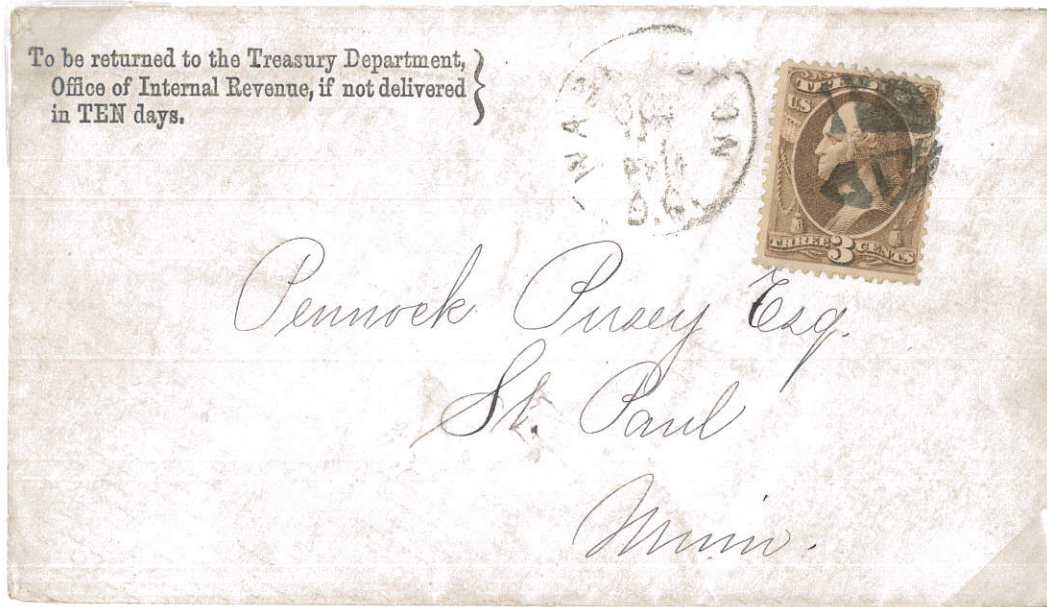 To be returned to the Treasury Department,
Office of Internal Revenue, if not delivered
in TEN days.
D.C.
U.S.
THREE 3 CENTS
Pennock Pusey Esq.
St. Paul
Minn.